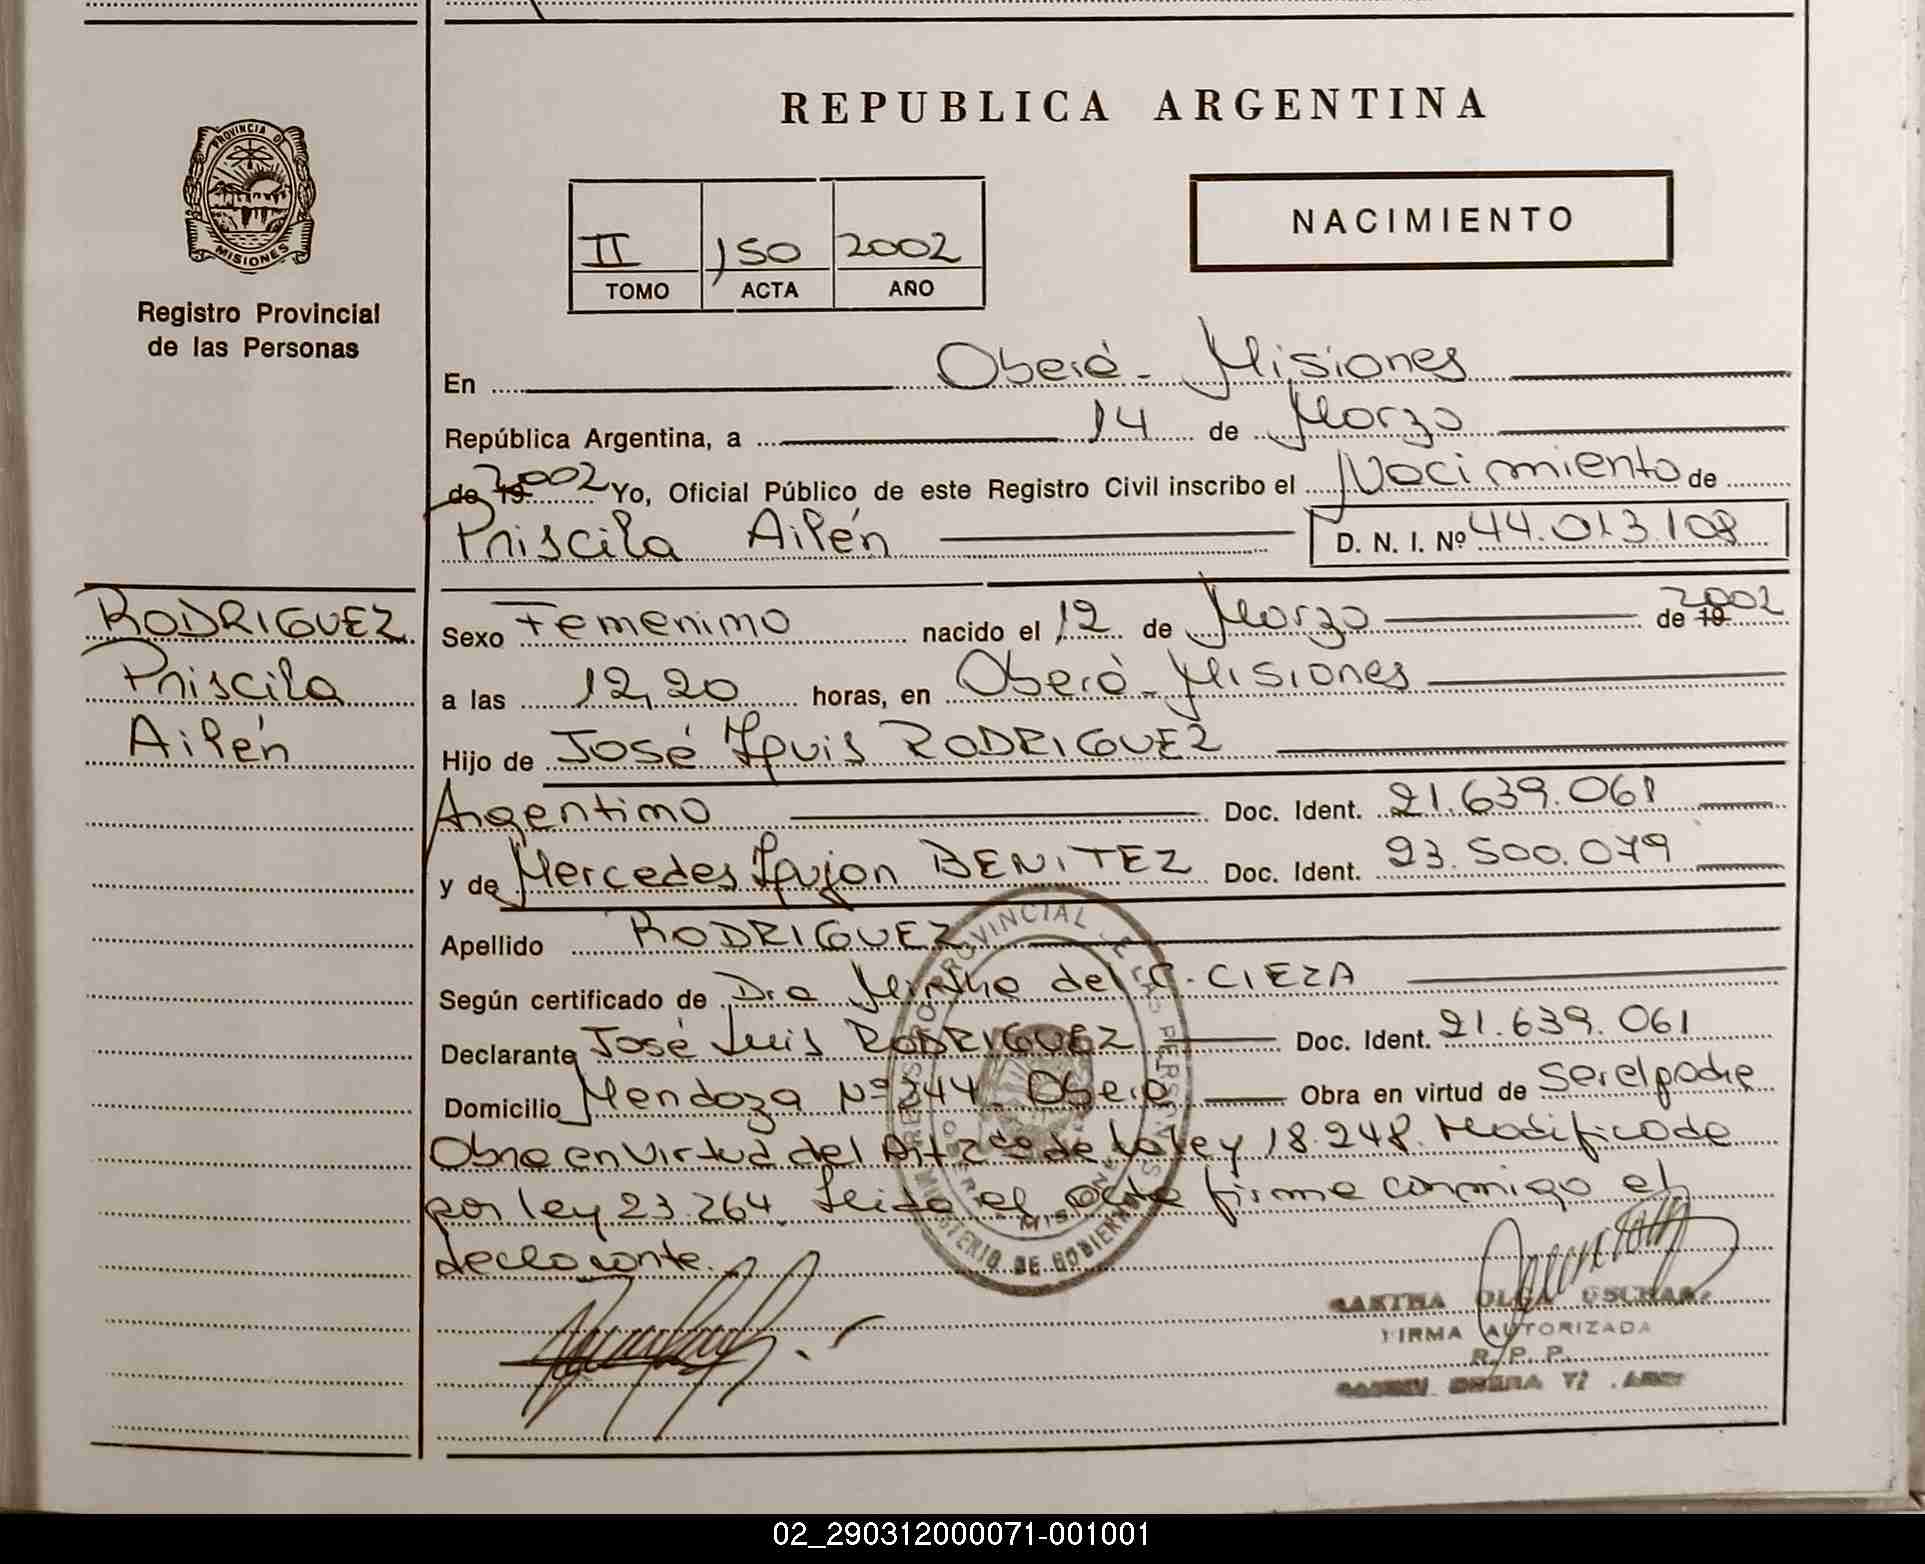 REPUBLICA ARGENTINA
PROVINCIA DE
MISIONES
Registro Provincial
de las Personas
II 150 2002
TOMO ACTA AÑO
NACIMIENTO
En Oberá - Misiones
República Argentina, a 14 de Marzo
de 19 2002 Yo, Oficial Público de este Registro Civil inscribo el Nacimiento de
Priscila Ailén D. N. I. Nº 44.013.108
RODRIGUEZ
Priscila
Ailén
Sexo Femenino nacido el 12 de Marzo de 19 2002
a las 12,20 horas, en Oberá - Misiones
Hijo de José Luis RODRIGUEZ
Argentino Doc. Ident. 21.639.061
y de Mercedes Lujan BENITEZ Doc. Ident. 23.500.079
Apellido RODRIGUEZ
Según certificado de Dra Mirtha del C. CIEZA
Declarante José Luis RODRIGUEZ Doc. Ident. 21.639.061
Domicilio Mendoza Nº 244 Oberá Obra en virtud de Ser el padre
Obra en virtud del Art 2do de la ley 18.248. Modificada
por ley 23.264. Leida el acta firma conmigo el
declarante.
REGISTRO PROVINCIAL DE LAS PERSONAS
MINISTERIO DE GOBIERNO
MISIONES
OLGA
FIRMA AUTORIZADA
R. P. P.
02_290312000071-001001